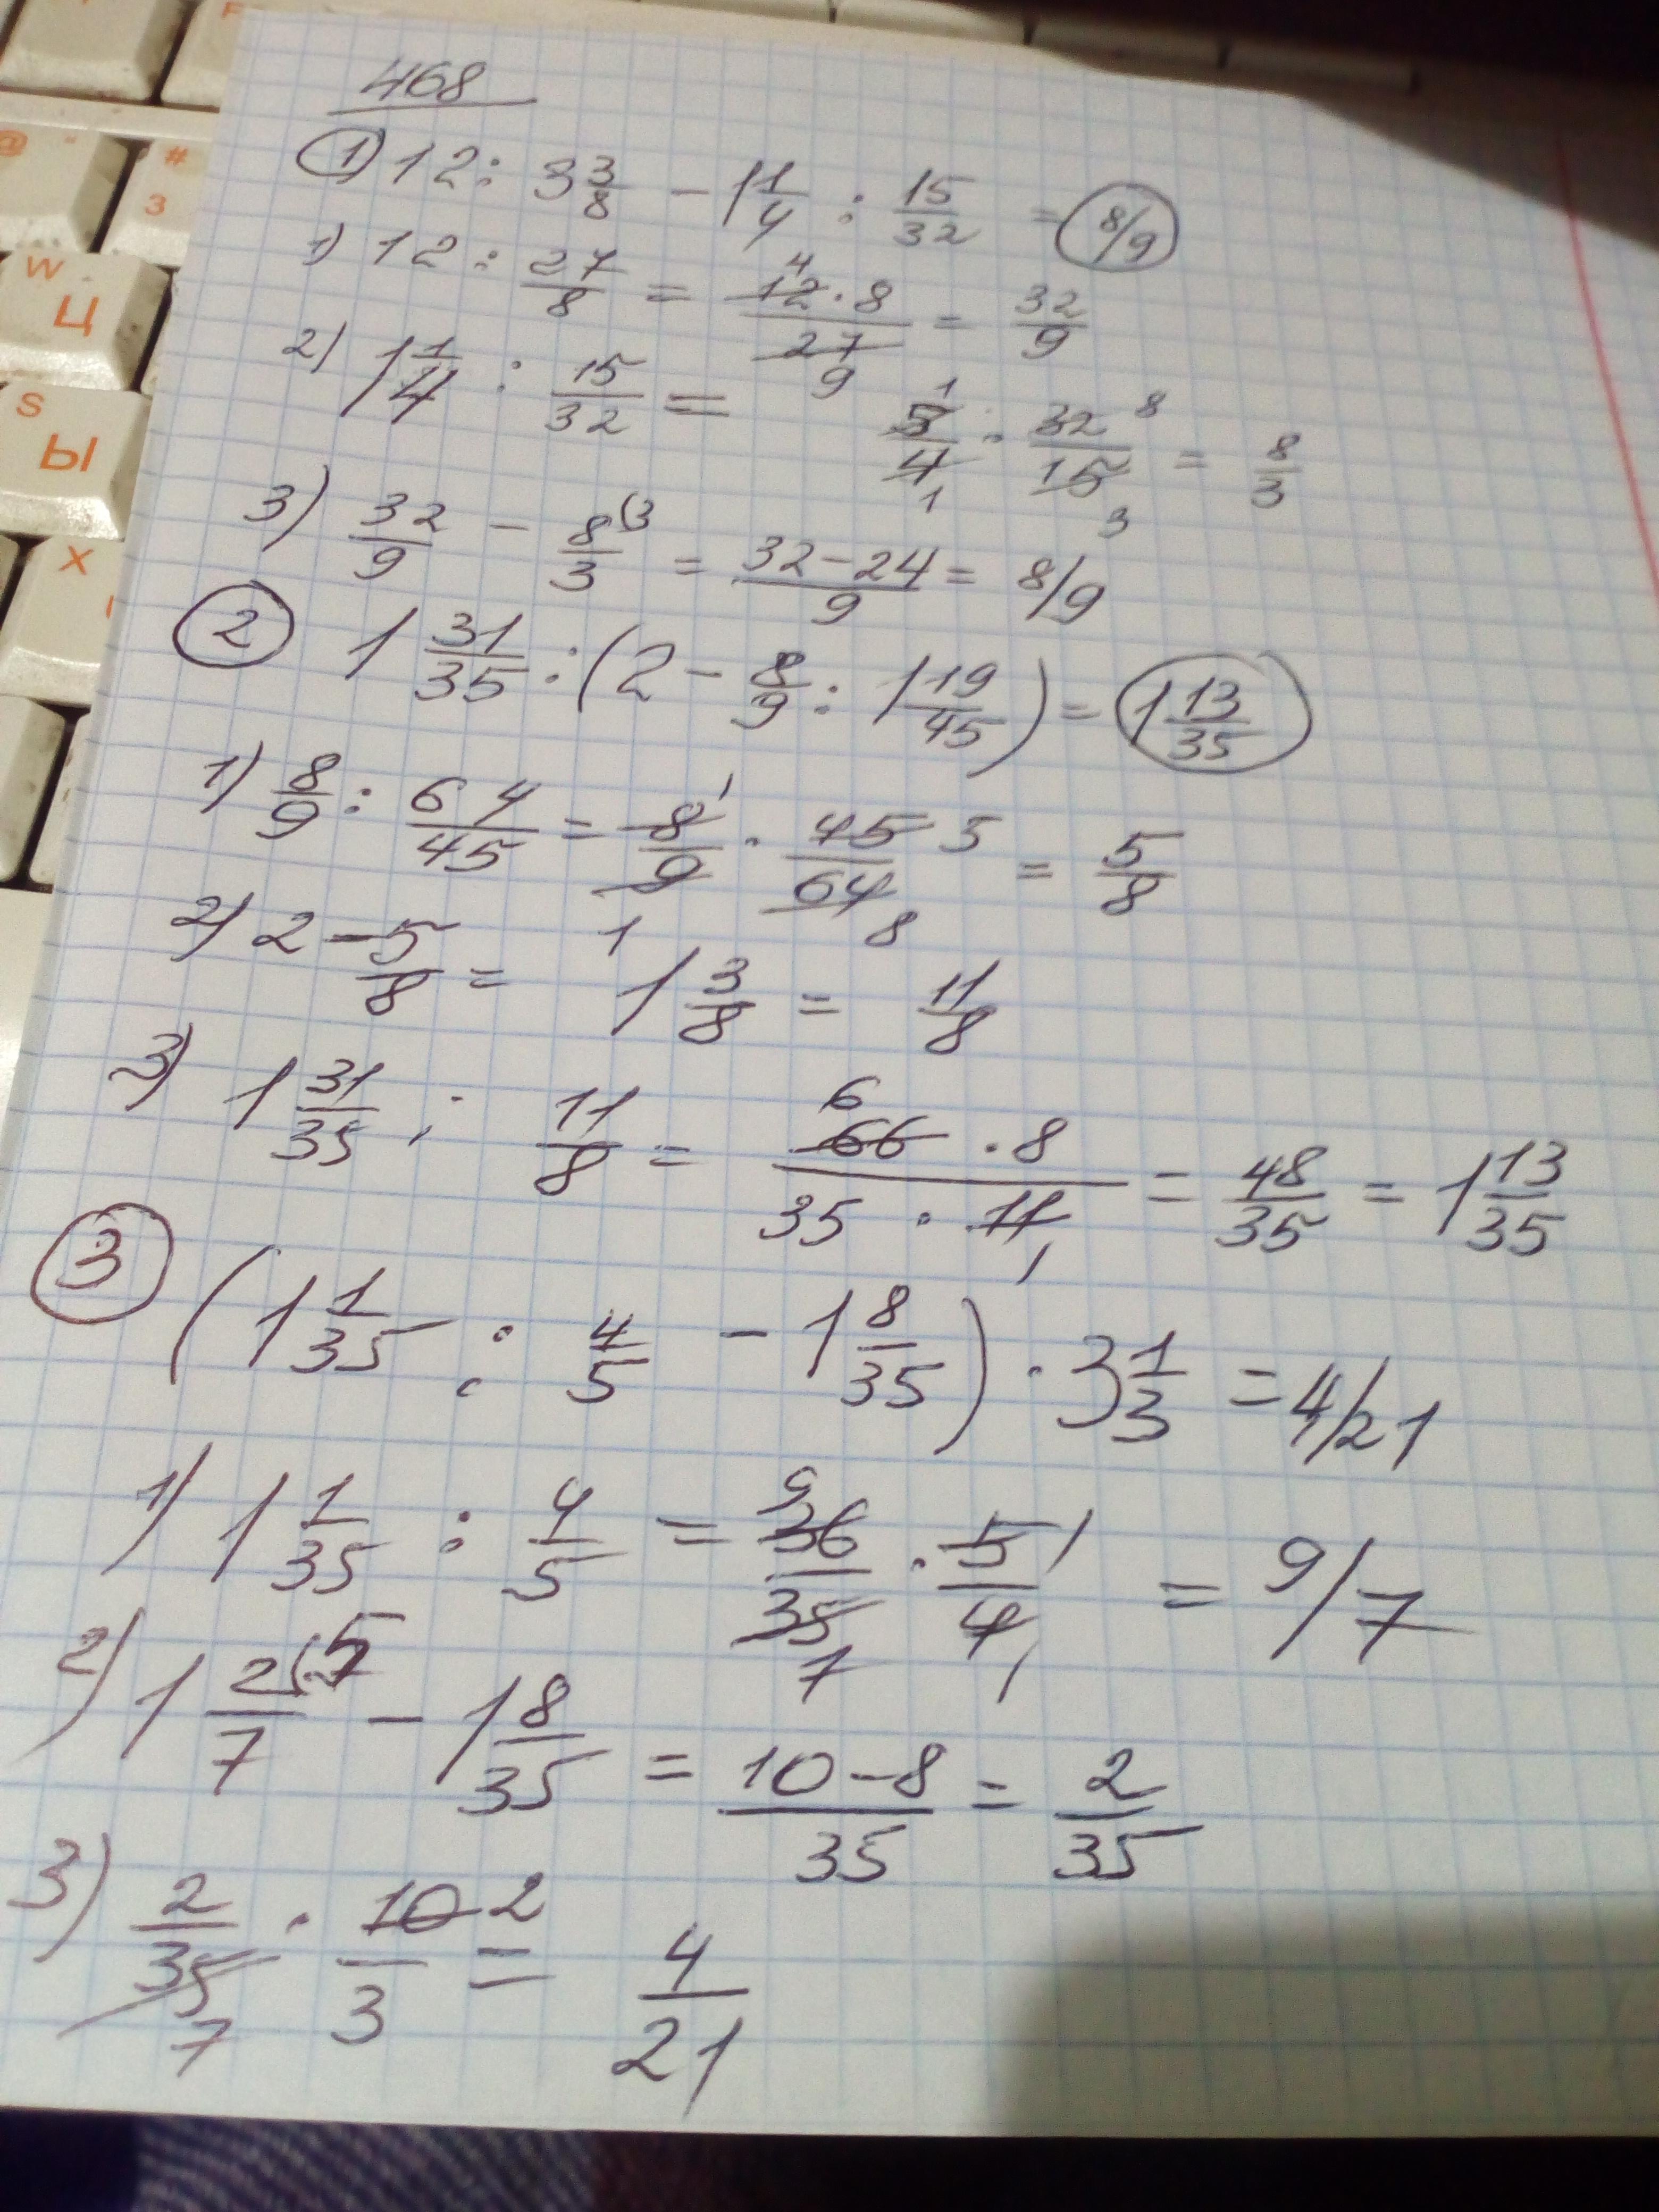 468
1) 12 : 3 3/8 - 1 1/4 : 15/32 = 8/9
1) 12 : 27/8 = 12 4 · 8 / 27 9 = 32/9
2) 1 1/4 : 15/32 = 5 1 / 4 1 · 32 8 / 15 3 = 8/3
3) 32/9 - 8/3 (3 = 32-24/9 = 8/9
2 1 31/35 : (2 - 8/9 : 1 19/45) = 1 13/35
1) 8/9 : 64/45 = 8 1 / 9 1 · 45 5 / 64 8 = 5/8
2) 2 - 5/8 = 1 3/8 = 11/8
3) 1 31/35 : 11/8 = 66 6 · 8 / 35 · 11 1 = 48/35 = 1 13/35
3 (1 1/35 : 4/5 - 1 8/35) · 3 1/3 = 4/21
1) 1 1/35 : 4/5 = 36 9 / 35 7 · 5 1 / 4 1 = 9/7
2) 1 2/7 (5 - 1 8/35 = 10-8/35 = 2/35
3) 2 / 35 7 · 10 2 / 3 = 4/21
@
#
3
W
Ц
S
Ы
X